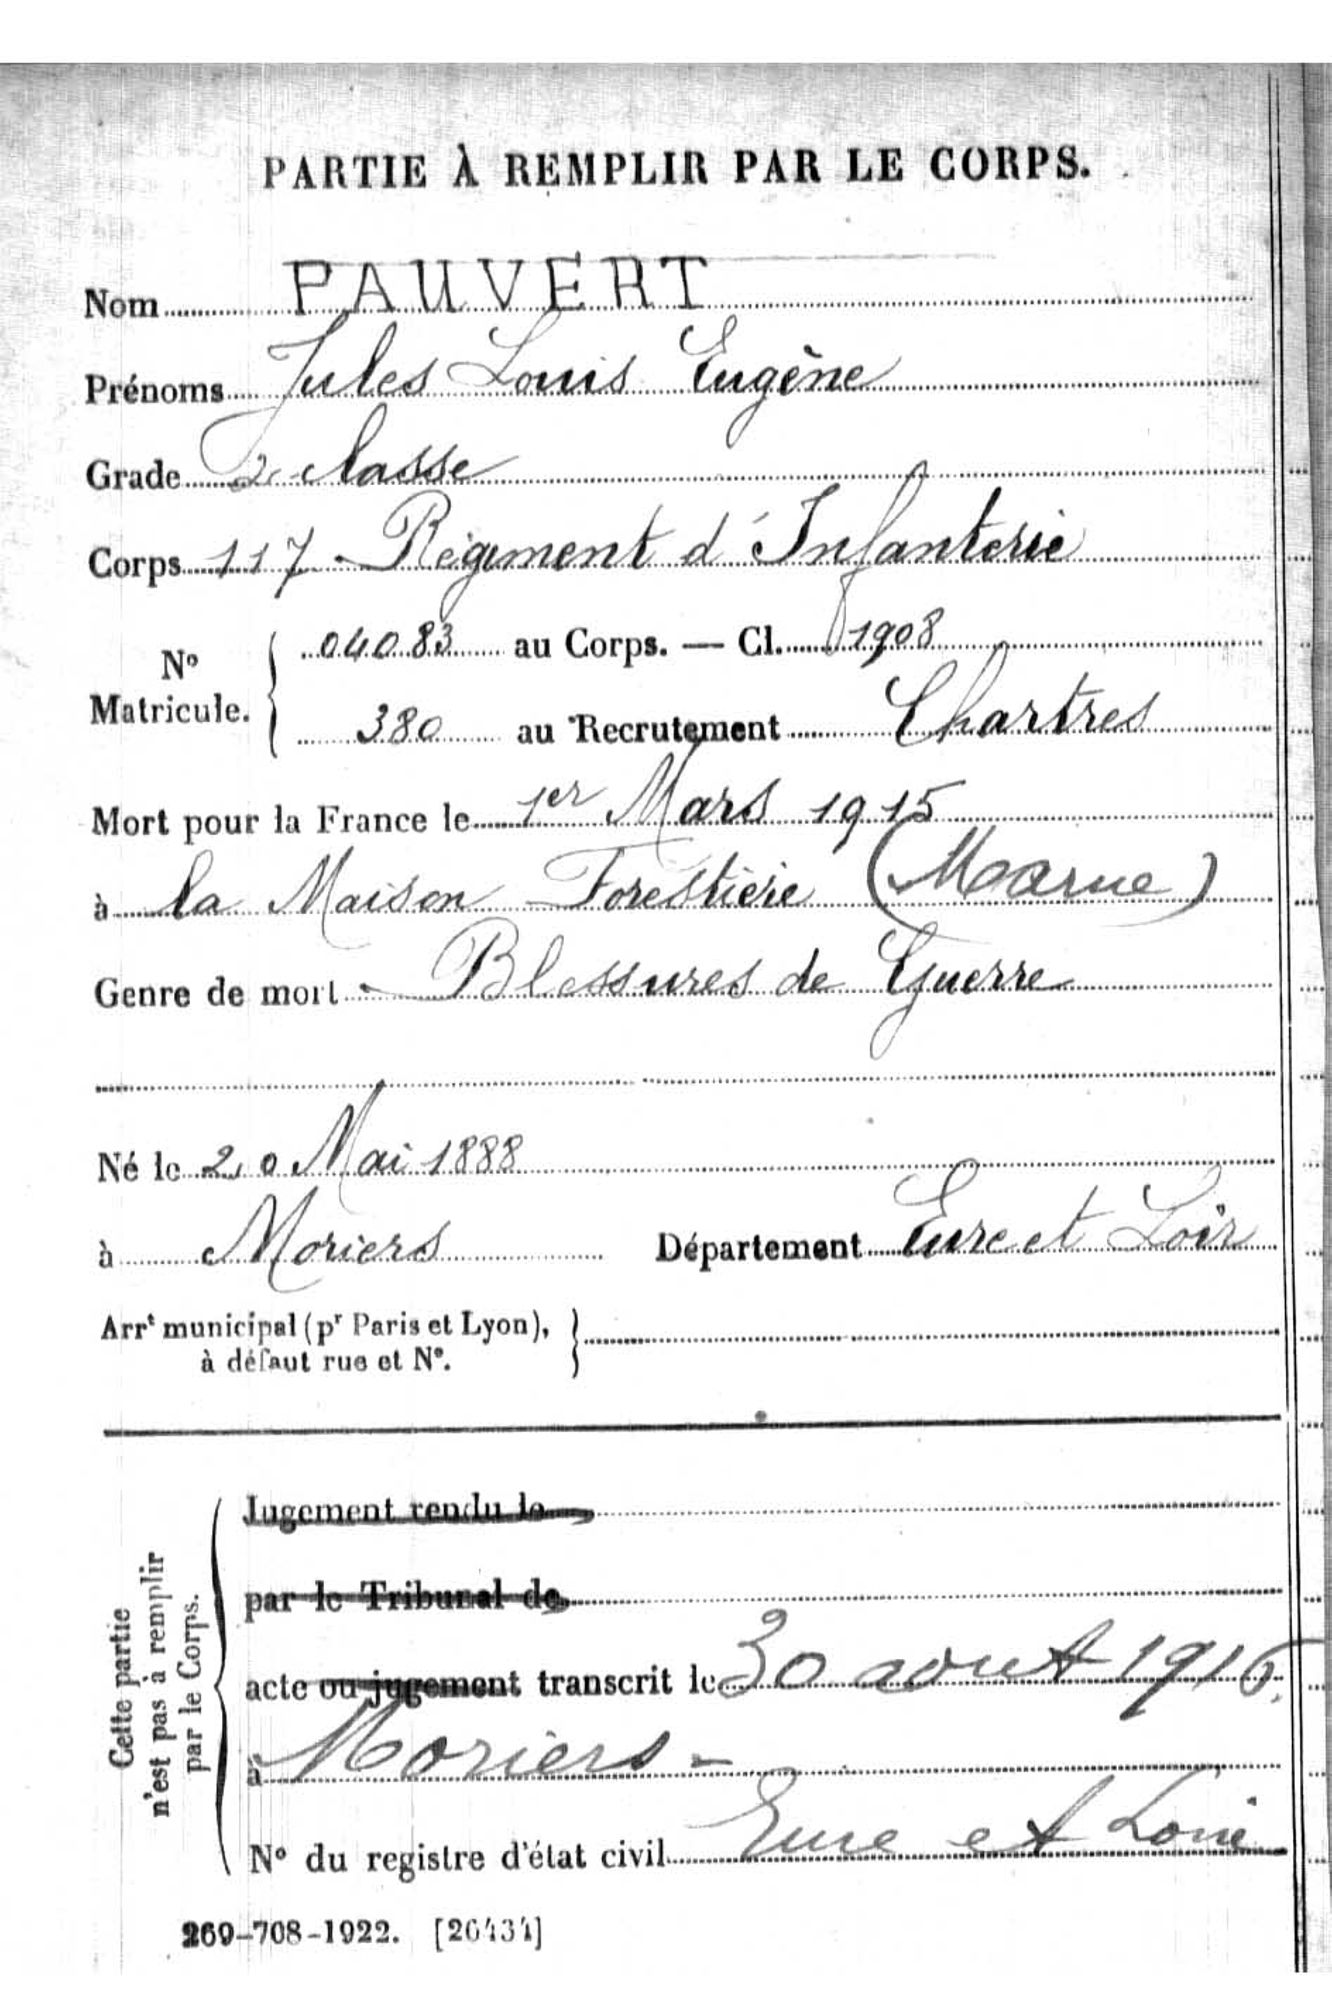 PARTIE À REMPLIR PAR LE CORPS.
Nom PAUVERT
Prénoms Jules Louis Eugène
Grade 2e classe
Corps 117 Régiment d'Infanterie
No Matricule. { 04083 au Corps. — Cl. 1908
380 au Recrutement Chartres
Mort pour la France le 1er Mars 1915
à la Maison Forestière (Marne)
Genre de mort Blessures de Guerre
Né le 20 Mai 1888
à Moriers Département Eure et Loir
Arrt municipal (pr Paris et Lyon), }
à défaut rue et No.
Cette partie
n'est pas à remplir
par le Corps.
Jugement rendu le
par le Tribunal de
acte ou jugement transcrit le 30 aout 1916
à Moriers
No du registre d'état civil Eure et Loir
269-708-1922. [26434]